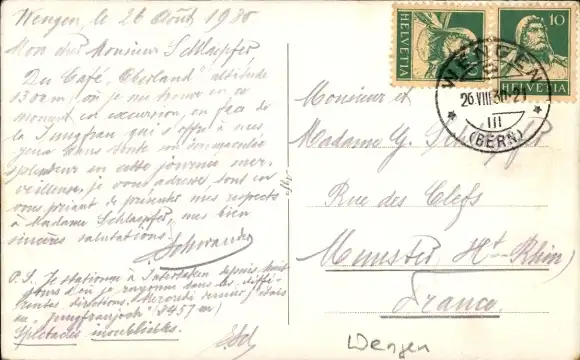 Wengen, le 26 Août 1930
Mon cher Monsieur Schlaepfer
Du Café "Oberland" altitude
1300 m, où je me trouve en ce
moment en excursion, en face de
la Jungfrau qui s'offre à mes
yeux dans toute son immaculée
splendeur en cette journée mer-
veilleuse, je vous adresse, tout en
vous priant de présenter mes respects
à Madame Schlaepfer, mes bien
sincères salutations.
Schwander
P.S. Je stationne à Interlaken depuis huit
jours d'où je rayonne dans les diffé-
rentes directions. Mercredi dernier j'étais
au "Jungfraujoch" 3457 m)
Spectacles inoubliables.
HELVETIA
10
HELVETIA
WENGEN
26.VIII.30
III
(BERN)
Monsieur et
Madame G. Schlaepfer
Rue des Clefs
Munster (Ht-Rhin)
France
Wengen